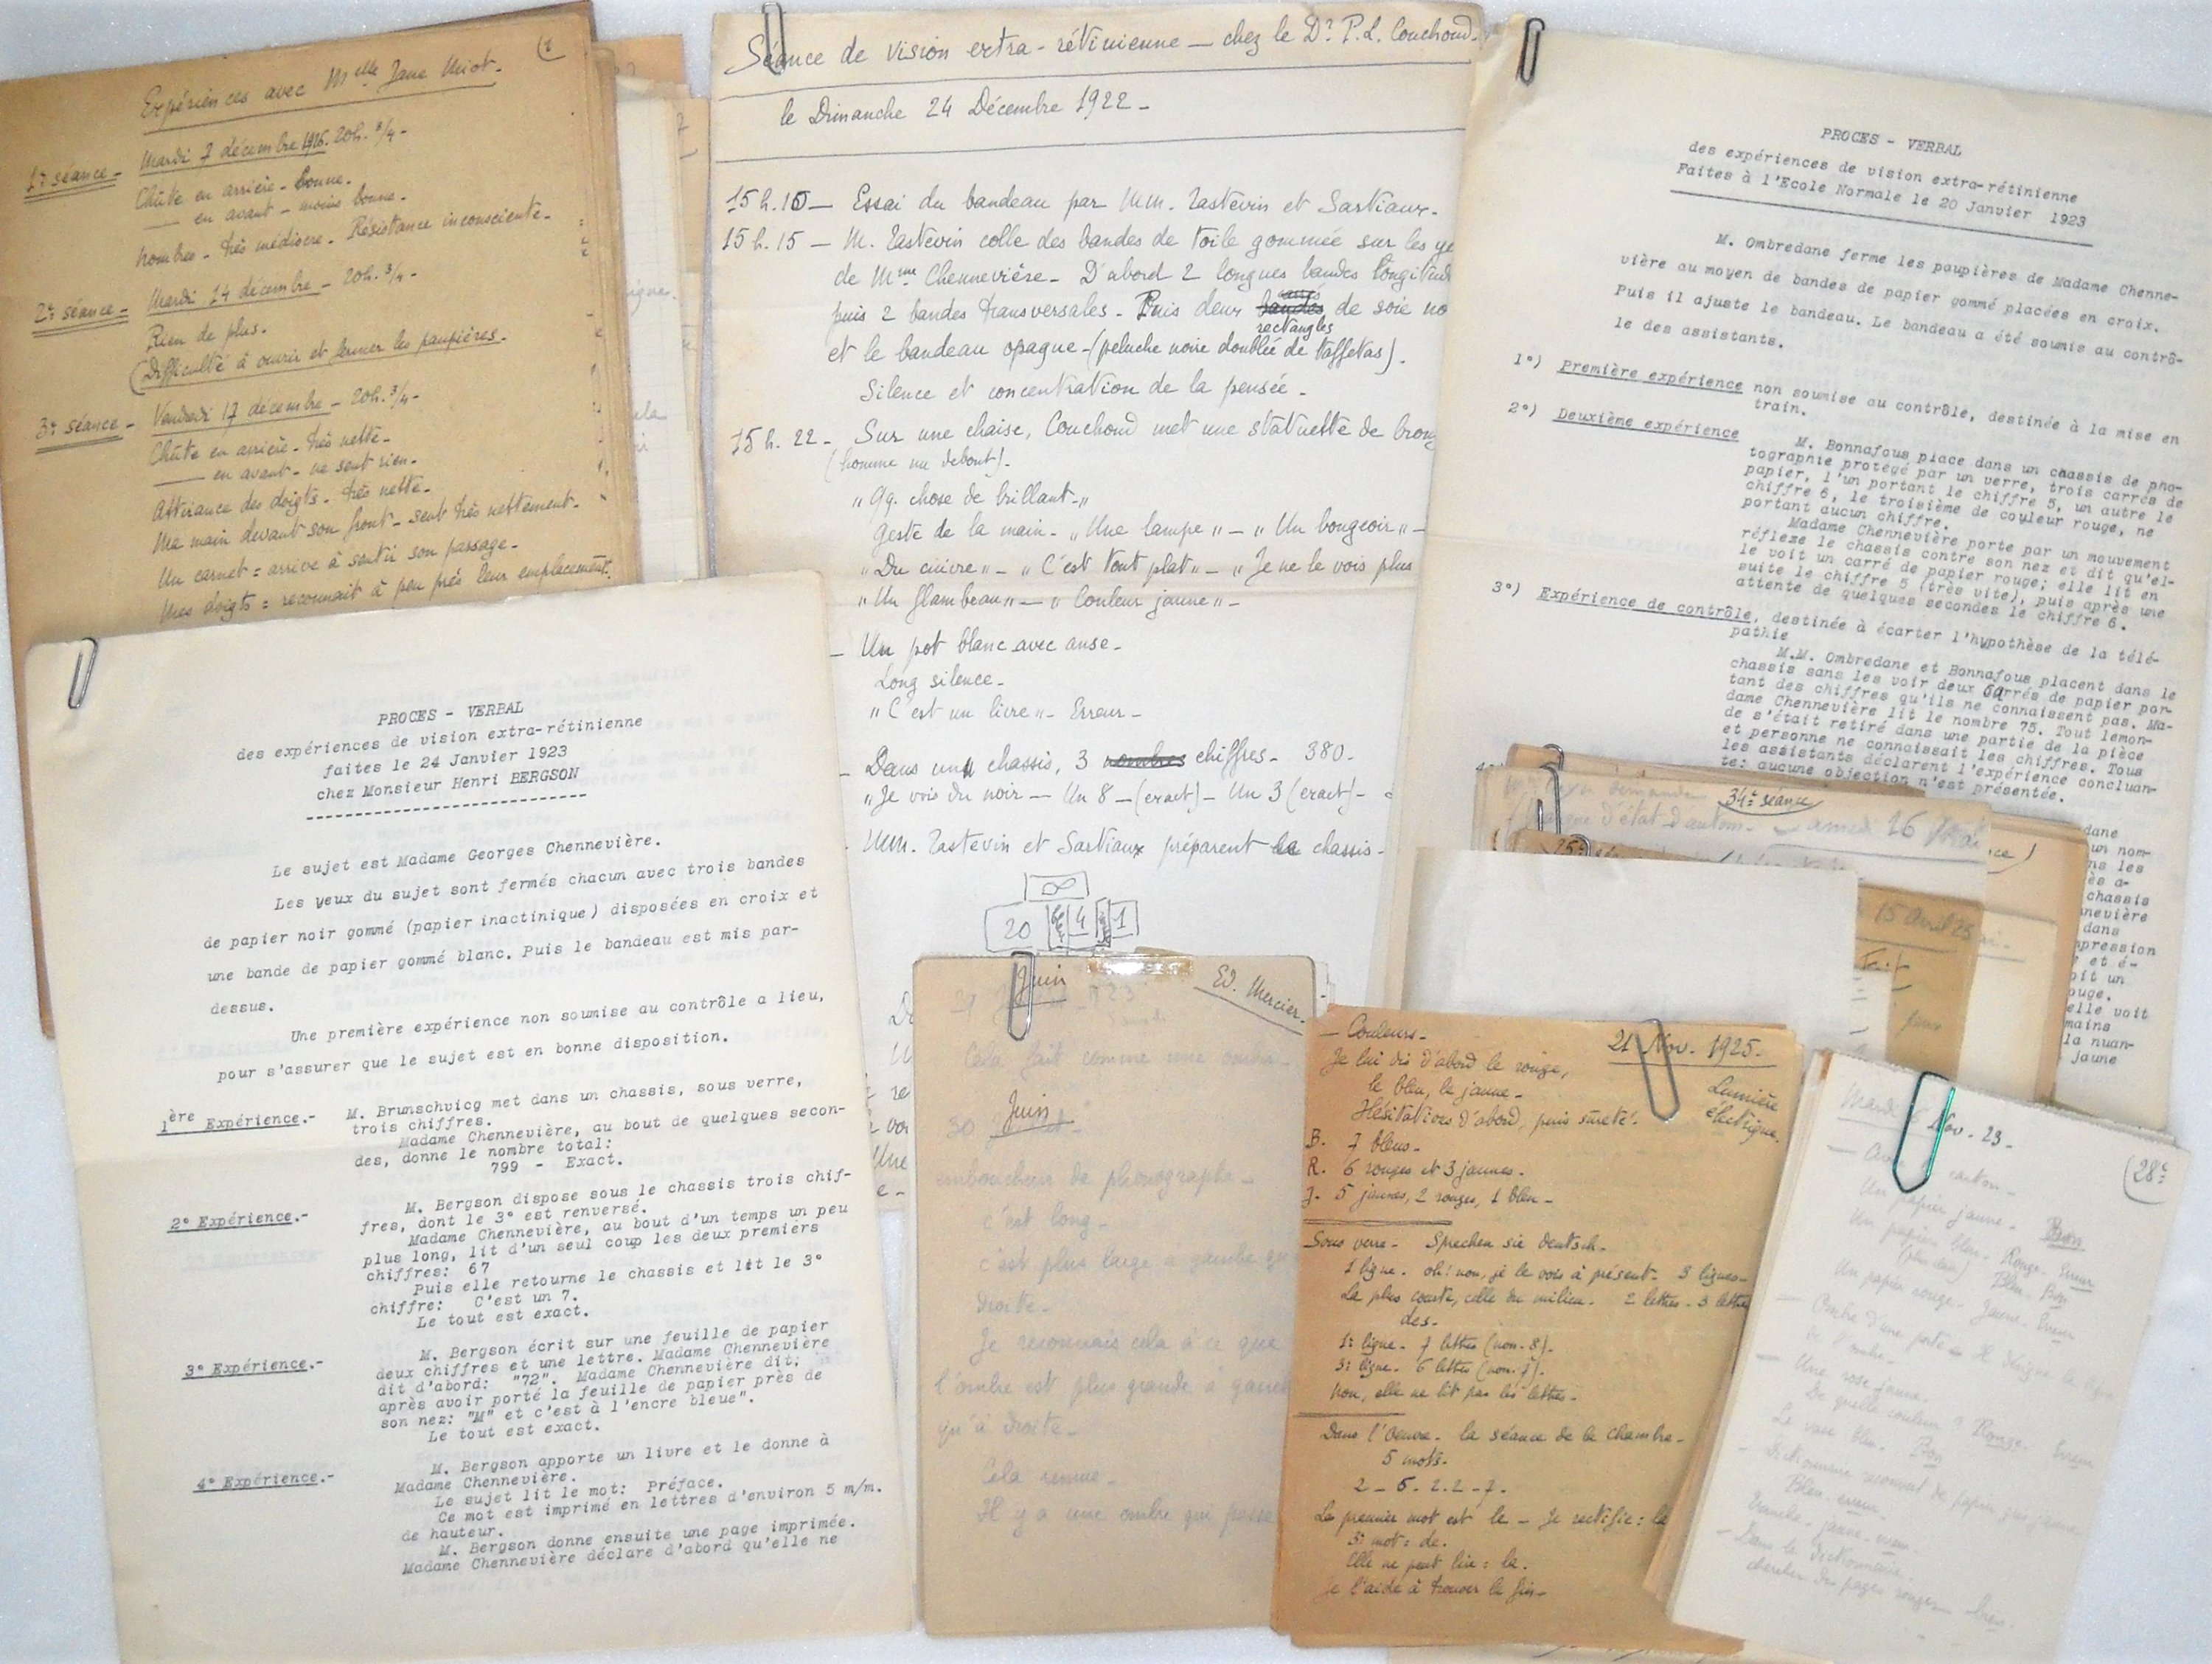 Expériences avec Melle Jane
1e séance - Mardi 7 décembre 1916. 20h. 3/4 -
Chûte en arrière - bonne.
— en avant - moins bonne.
nombres - très médiocre. Résistance inconsciente -
2e séance - Mardi 14 décembre - 20h. 3/4 -
Rien de plus.
(Difficulté à ouvrir et fermer les paupières.
3e séance - Vendredi 17 décembre - 20h. 3/4 -
Chûte en arrière - très nette -
— en avant - ne sent rien -
Attirance des doigts - très nette -
Ma main devant son front - sent très nettement -
Un carnet = arrive à sentir son passage -
Mes doigts = reconnait à peu près leur emplacement.
Séance de vision extra-rétinienne — chez le Dr P. L. Couchoud.
le Dimanche 24 Décembre 1922 -
15 h. 10 — Essai du bandeau par MM. Tastevin et Sartiaux.
15 h. 15 — M. Tastevin colle des bandes de toile gommée sur les ye
de Mme Chennevière - D'abord 2 longues bandes longitud
puis 2 bandes transversales - Puis deux bandes de soie no
rectangles
et le bandeau opaque - (peluche noire doublée de taffetas).
Silence et concentration de la pensée -
15 h. 22 - Sur une chaise, Couchoud met une statuette de bronz
(homme nu debout).
"Qq. chose de brillant -"
Geste de la main - "Une lampe" — "Un bougeoir" —
"Du cuivre" - "C'est tout plat" - "Je ne le vois plus
"Un flambeau" — "Couleur jaune" -
— Un pot blanc avec anse -
Long silence -
"C'est un livre" - Erreur -
— Dans un chassis, 3 nombres chiffres - 380 -
"Je vois du noir — Un 8 - (exact) - Un 3 (exact) -
MM. Tastevin et Sartiaux préparent le chassis -
8
20 4 1
PROCES - VERBAL
des expériences de vision extra-rétinienne
Faites à l'Ecole Normale le 20 Janvier 1923
M. Ombredane ferme les paupières de Madame Chenne-
vière au moyen de bandes de papier gommé placées en croix.
Puis il ajuste le bandeau. Le bandeau a été soumis au contrô-
le des assistants.
1°) Première expérience non soumise au contrôle, destinée à la mise en
train.
2°) Deuxième expérience
M. Bonnafous place dans un chassis de pho-
tographie protégé par un verre, trois carrés de
papier, l'un portant le chiffre 5, un autre le
chiffre 6, le troisième de couleur rouge, ne
portant aucun chiffre.
Madame Chennevière porte par un mouvement
réflexe le chassis contre son nez et dit qu'el-
le voit un carré de papier rouge; elle lit en
suite le chiffre 5 (très vite), puis après une
attente de quelques secondes le chiffre 6.
3°) Expérience de contrôle, destinée à écarter l'hypothèse de la télé-
pathie
M.M. Ombredane et Bonnafous placent dans le
chassis sans les voir deux carrés de papier por-
tant des chiffres qu'ils ne connaissent pas. Ma-
dame Chennevière lit le nombre 75. Tout lemon-
de s'était retiré dans une partie de la pièce
et personne ne connaissait les chiffres. Tous
les assistants déclarent l'expérience concluan-
te: aucune objection n'est présentée.
dane
un nom-
ns les
ès a-
chassis
nevière
dans
pression
et é-
oit un
ouge.
elle voit
mains
la nuan-
jaune
34e séance
15 Avril 25
PROCES - VERBAL
des expériences de vision extra-rétinienne
faites le 24 Janvier 1923
chez Monsieur Henri BERGSON
Le sujet est Madame Georges Chennevière.
Les yeux du sujet sont fermés chacun avec trois bandes
de papier noir gommé (papier inactinique) disposées en croix et
une bande de papier gommé blanc. Puis le bandeau est mis par-
dessus.
Une première expérience non soumise au contrôle a lieu,
pour s'assurer que le sujet est en bonne disposition.
1ère Expérience.- M. Brunschvicg met dans un chassis, sous verre,
trois chiffres.
Madame Chennevière, au bout de quelques secon-
des, donne le nombre total:
799 - Exact.
2° Expérience.- M. Bergson dispose sous le chassis trois chif-
fres, dont le 3° est renversé.
Madame Chennevière, au bout d'un temps un peu
plus long, lit d'un seul coup les deux premiers
chiffres: 67
Puis elle retourne le chassis et lit le 3°
chiffre: C'est un 7.
Le tout est exact.
3° Expérience.- M. Bergson écrit sur une feuille de papier
deux chiffres et une lettre. Madame Chennevière
dit d'abord: "72". Madame Chennevière dit;
après avoir porté la feuille de papier près de
son nez: "M" et c'est à l'encre bleue".
Le tout est exact.
4° Expérience.- M. Bergson apporte un livre et le donne à
Madame Chennevière.
Le sujet lit le mot: Préface.
Ce mot est imprimé en lettres d'environ 5 m/m.
de hauteur.
M. Bergson donne ensuite une page imprimée.
Madame Chennevière déclare d'abord qu'elle ne
Juin
Ed. Mercier.
Cela fait comme une ombre -
30 Juin
embouchure de phonographe -
c'est long -
c'est plus large à gauche qu
droite -
Je reconnais cela à ce que
l'ombre est plus grande à gauche
qu'à droite -
Cela remue -
Il y a une ombre qui passe
— Couleurs - 21 Nov. 1925.
Je lui dis d'abord le rouge,
le bleu, le jaune -
Lumière électrique.
Hésitations d'abord, puis sûreté.
B. 7 bleus -
R. 6 rouges et 3 jaunes.
J. 5 jaunes, 2 rouges, 1 bleu -
Sous verre - Sprechen sie deutsch -
1 ligne. oh! non, je le vois à présent - 3 lignes -
La plus courte, celle du milieu. 2 lettres - 3 lettres
des -
1e ligne - 7 lettres (non - 8).
3e ligne - 6 lettres (non - 7).
Non, elle ne lit pas les lettres -
Dans l'Oeuvre - la séance de la Chambre -
5 mots -
2 - 6. 2. 2 - 7.
Le premier mot est le - Je rectifie : la
3e mot : de.
Elle ne peut lire : la.
Je l'aide à trouver la fin -
Mardi 6 Nov. 23 -
(28e
Un papier jaune - Bon
Un papier bleu - Rouge - Erreur
Bleu - Bon
Un papier rouge - Jaune - Erreur
— Ombre d'une porte -
— Une rose jaune.
De quelle couleur ? Rouge. Erreur
Le vase bleu. Bon
Bleu - erreur
Tranche - jaune -
— Dans le dictionnaire,
chercher des pages rouges -